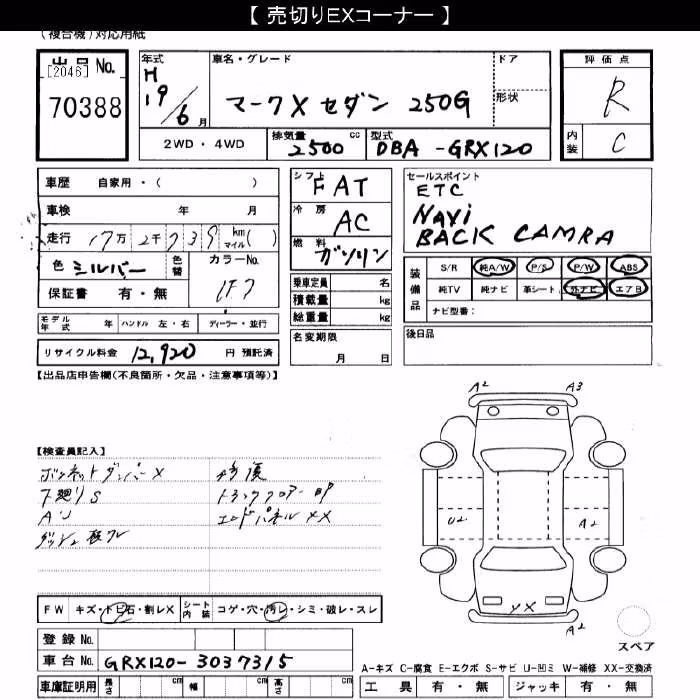 【 売切りEXコーナー 】
(複合機)対応用紙
出品 No.
[2046]
70388
年式 H 19/6 月
車名・グレード
マークX セダン 250G
ドア
形状
評価点
R
内装 C
2WD・4WD
排気量 2500 cc
型式 DBA-GRX120
車歴 自家用・( )
車検 年 月
走行 17万2千739 km マイル( )
色 シルバー 色替 カラーNo. 1F7
保証書 有・無
モデル年式 年 ハンドル 左・右 ディーラー・並行
リサイクル料金 12,920 円 預託済
シフト FAT
冷房 AC
燃料 ガソリン
乗車定員 名
積載量
総重量
名変期限
月 日
セールスポイント
ETC
NAVI
BACK CAMRA
装備品
S/R 純A/W P/S P/W ABS
純TV 純ナビ 革シート 外ナビ エアB
ナビ型番:
後日品
【出品店申告欄(不良箇所・欠品・注意事項等)】
【検査員記入】
ボンネットダンパーX
下廻りS
AU
修復
トランクフロアー
エンドパネル XX
A2 A3
U2 A2
XX
A2
スペア
FW キズ・トビ石・割レX シート内装 コゲ・穴・汚レ・シミ・破レ・スレ
登録 No.
車台 No. GRX120-3037315
車庫証明用 長さ cm 幅 cm 高さ cm
A-キズ C-腐食 E-エクボ S-サビ U-凹ミ W-補修 XX-交換済
工具 有・無 ジャッキ 有・無